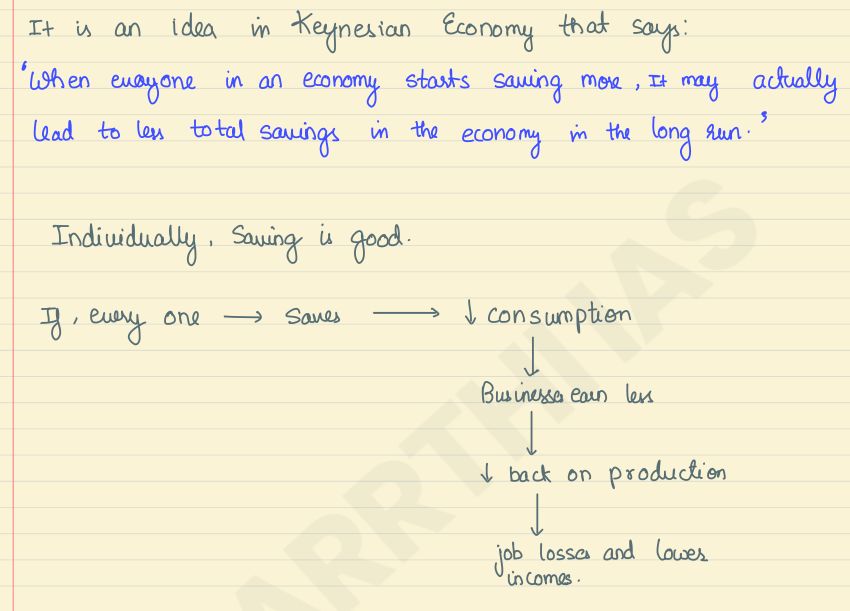 It is an idea in Keynesian Economy that says:
'When everyone in an economy starts saving more, It may actually
lead to less total savings in the economy in the long run.'
Individually, Saving is good.
If, every one → saves → ↓ consumption
↓
Businesses earn less
↓
↓ back on production
↓
job losses and lowes
incomes.
ARRTHI IAS